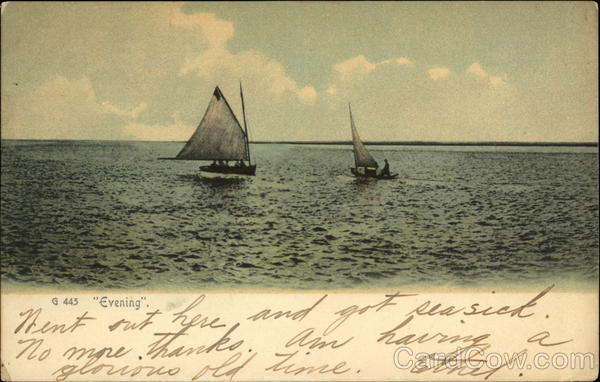 G 443 "Evening".
Went out here and got seasick.
No more thanks. Am having a
glorious old time.
CardCow.com